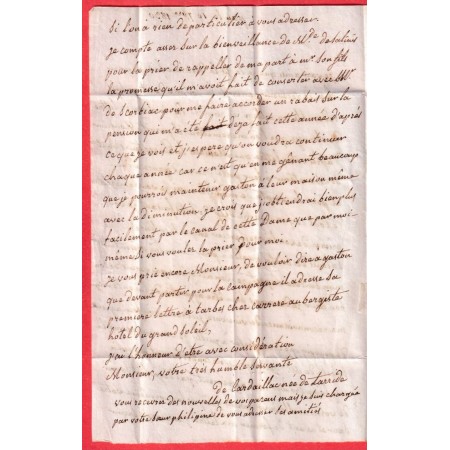 si l'on a rien de particulier a vous adresser.
je compte assez sur la bienveillance de Mde de
pour la prier de rappeller de ma part à mr son fils
la promesse qu'il m'avoit fait de concerter avec Mr
de Scorbiac pour me faire accorder un rabais sur la
pension qui m'a été deja fait cette année d'après
ce que je vois et j'espere qu'on voudra continuer
chaque année car ce n'est qu'en me gênant beaucoup
que je pourrois maintenir gaston a leur maison même
avec la diminution. je crois que j'obtiendrai bien plus
facilement par le canal de cette Dame que par moi-
même si vous voulez la prier pour moi.
je vous prie encore Monsieur, de vouloir dire à gaston
que devant partir pour la campagne il adresse sa
premiere lettre à tarbes chez carrere aubergiste
hotel du grand soleil,
j'ai l'honneur d'etre avec considération
Monsieur, votre très humble servante
de Cardaillac née de Tarride
vous recevrez des nouvelles de vos parens mais je suis chargée
par votre sœur philipine de vous adresser ses amitiés